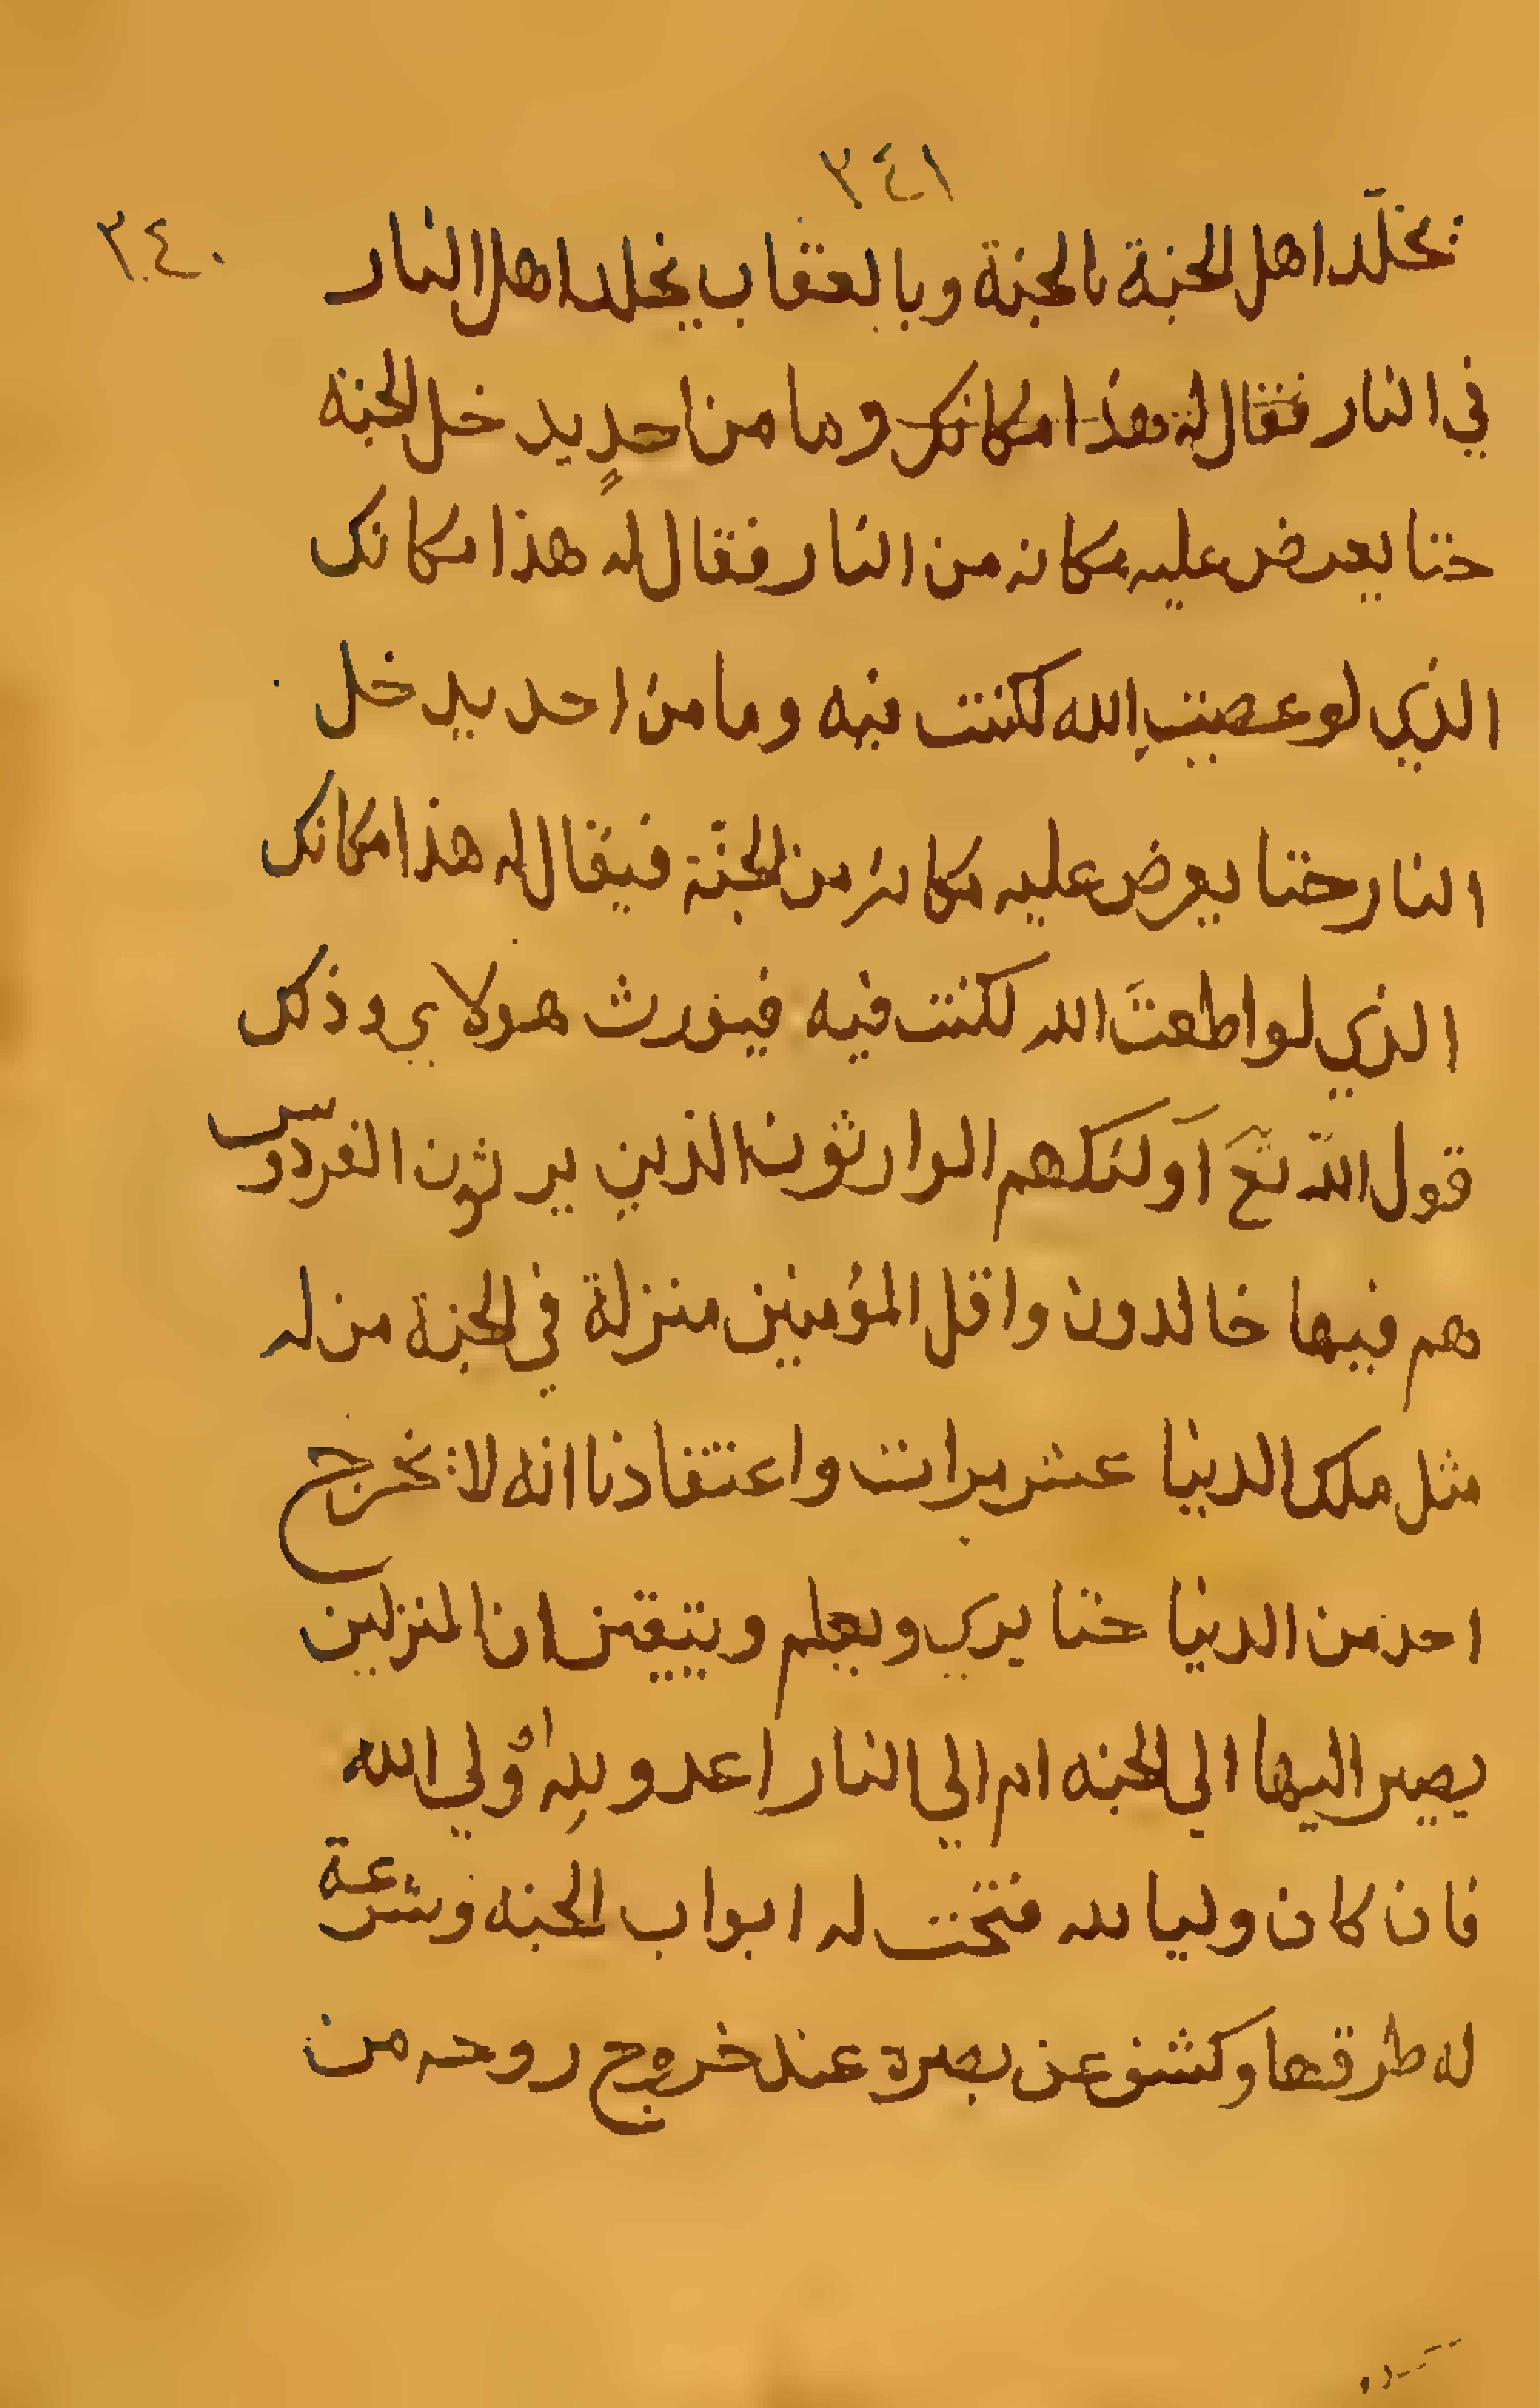 ٣٤١
٣٤٠
تخلّد اهل الجنة بالجنة وبالعقاب يخلد اهل النار
في النار فقال له هذا مكانك وما من احدٍ يدخل الجنة
حتا يعرض عليه مكانه من النار فقال له هذا مكانك
الذي لو عصيت الله لكنت فيه وما من احد يدخل
النار حتا يعرض عليه مكانه من الجنّة فيقال له هذا مكانك
الذي لو اطعتَ الله لكنت فيه فيورث هولاي وذلك
قول اللّه تعَ اولئك هم الوارثون الذين يرثون الفردوس
هم فيها خالدون واقل المؤمنين منزلة في الجنة من له
مثل ملك الدنيا عشر مرات واعتقادنا انه لا تخرج
احد من الدنيا حتا يري ويعلم ويتيقن ان المنزلين
يصير اليها الي الجنه ام الي النار اعدو للهِ اوْلي الله
فان كان وليا لله فتحت له ابواب الجنه وشرعة
له طرقها وكشف عن بصره عند خروج روحه من